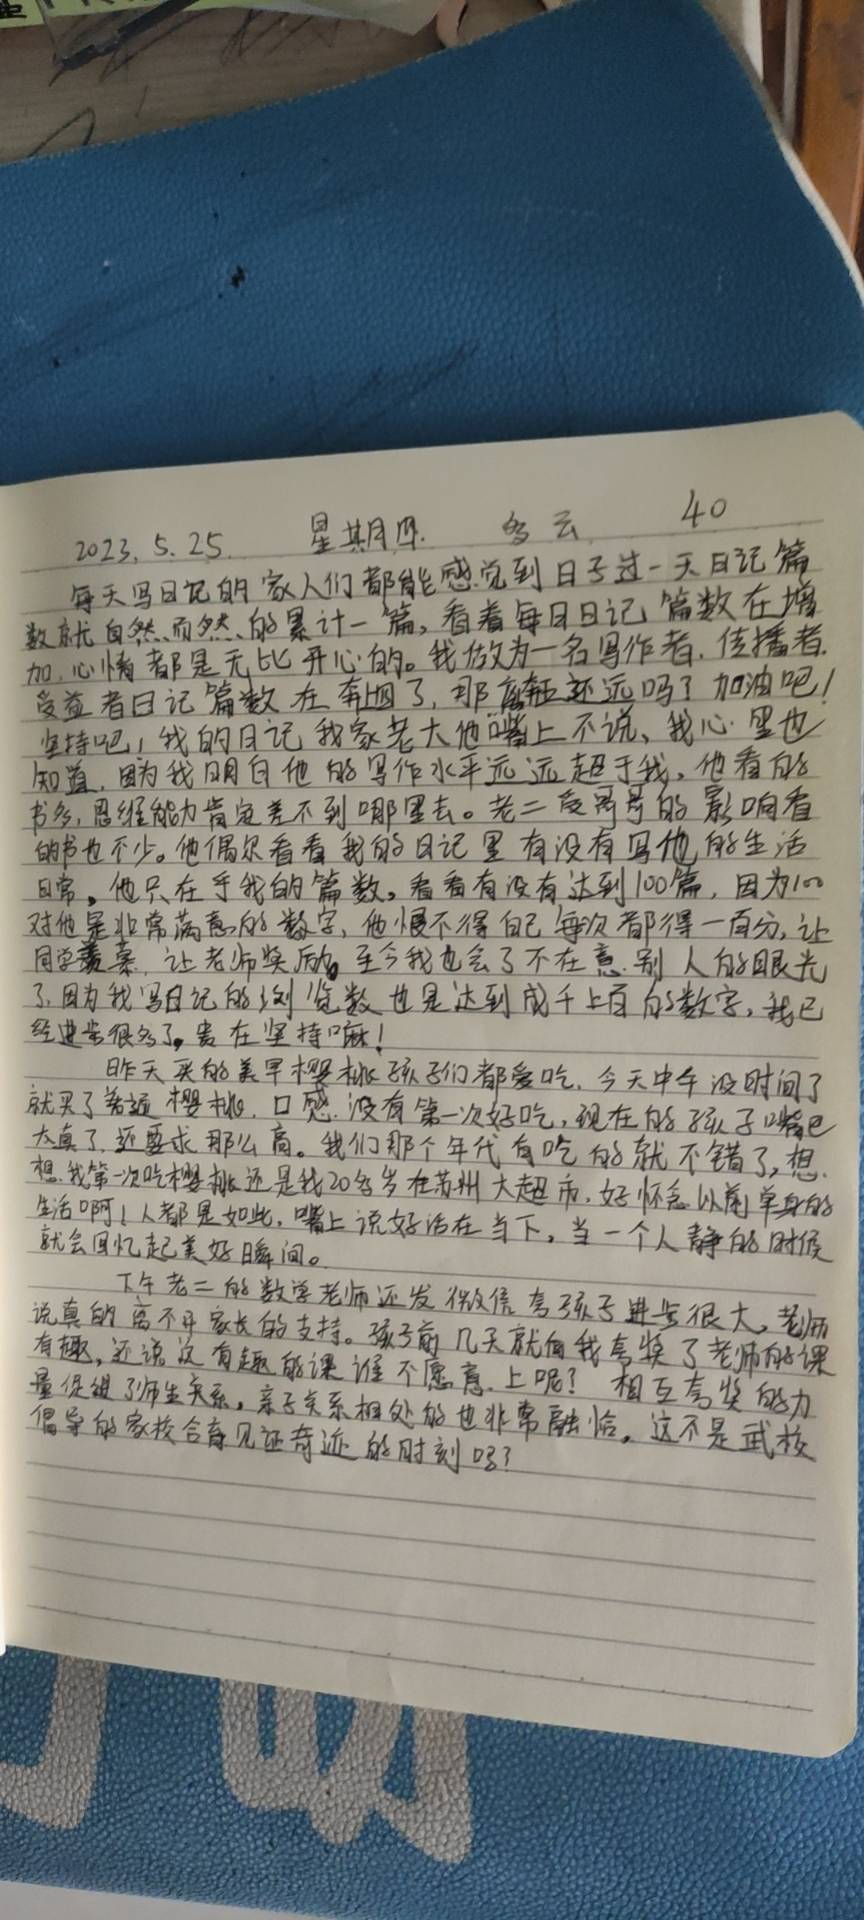 2023.5.25. 星期四. 多云 40
每天写日记的家人们都能感觉到日子过一天日记篇
数就自然而然的累计一篇,看着每日日记篇数在增
加,心情都是无比开心的。我做为一名写作者.传播者.
受益者日记篇数在奔四了,那离 还远吗?加油吧!
坚持吧!我的日记我家老大他嘴上不说、我心里也
知道,因为我明白他的写作水平远远超于我,他看的
书多,思维能力肯定差不到哪里去。老二受哥哥的影响看
的书也不少。他偶尔看看我的日记里有没有写他的生活
日常,他只在乎我的篇数,看看有没有达到100篇,因为100
对他是非常满意的数字,他恨不得自己每次都得一百分,让
同学羡慕,让老师奖励。至今我也会了不在意别人的眼光
了,因为我写日记的浏览数也是达到成千上百的数字,我已
经进步很多了。贵在坚持嘛!
昨天买的美早樱桃孩子们都爱吃,今天中午没时间了
就买了普通樱桃,口感没有第一次好吃,现在的孩子嘴巴
太真了,还要求那么高。我们那个年代有吃的就不错了,想
想,我第一次吃樱桃还是我20多岁在苏州大超市,好怀念以前单身的
生活啊!人都是如此,嘴上说好活在当下,当一个人静的时候
就会回忆起美好瞬间。
下午老二的数学老师还发微信夸孩子进步很大,老师
说真的离不开家长的支持。孩子前几天就向我夸奖了老师的课
有趣,还说这有趣的课谁不愿意上呢?相互夸奖的力
量促进了师生关系,亲子关系相处的也非常融洽。这不是武校
倡导的家校合育见证奇迹的时刻吗?